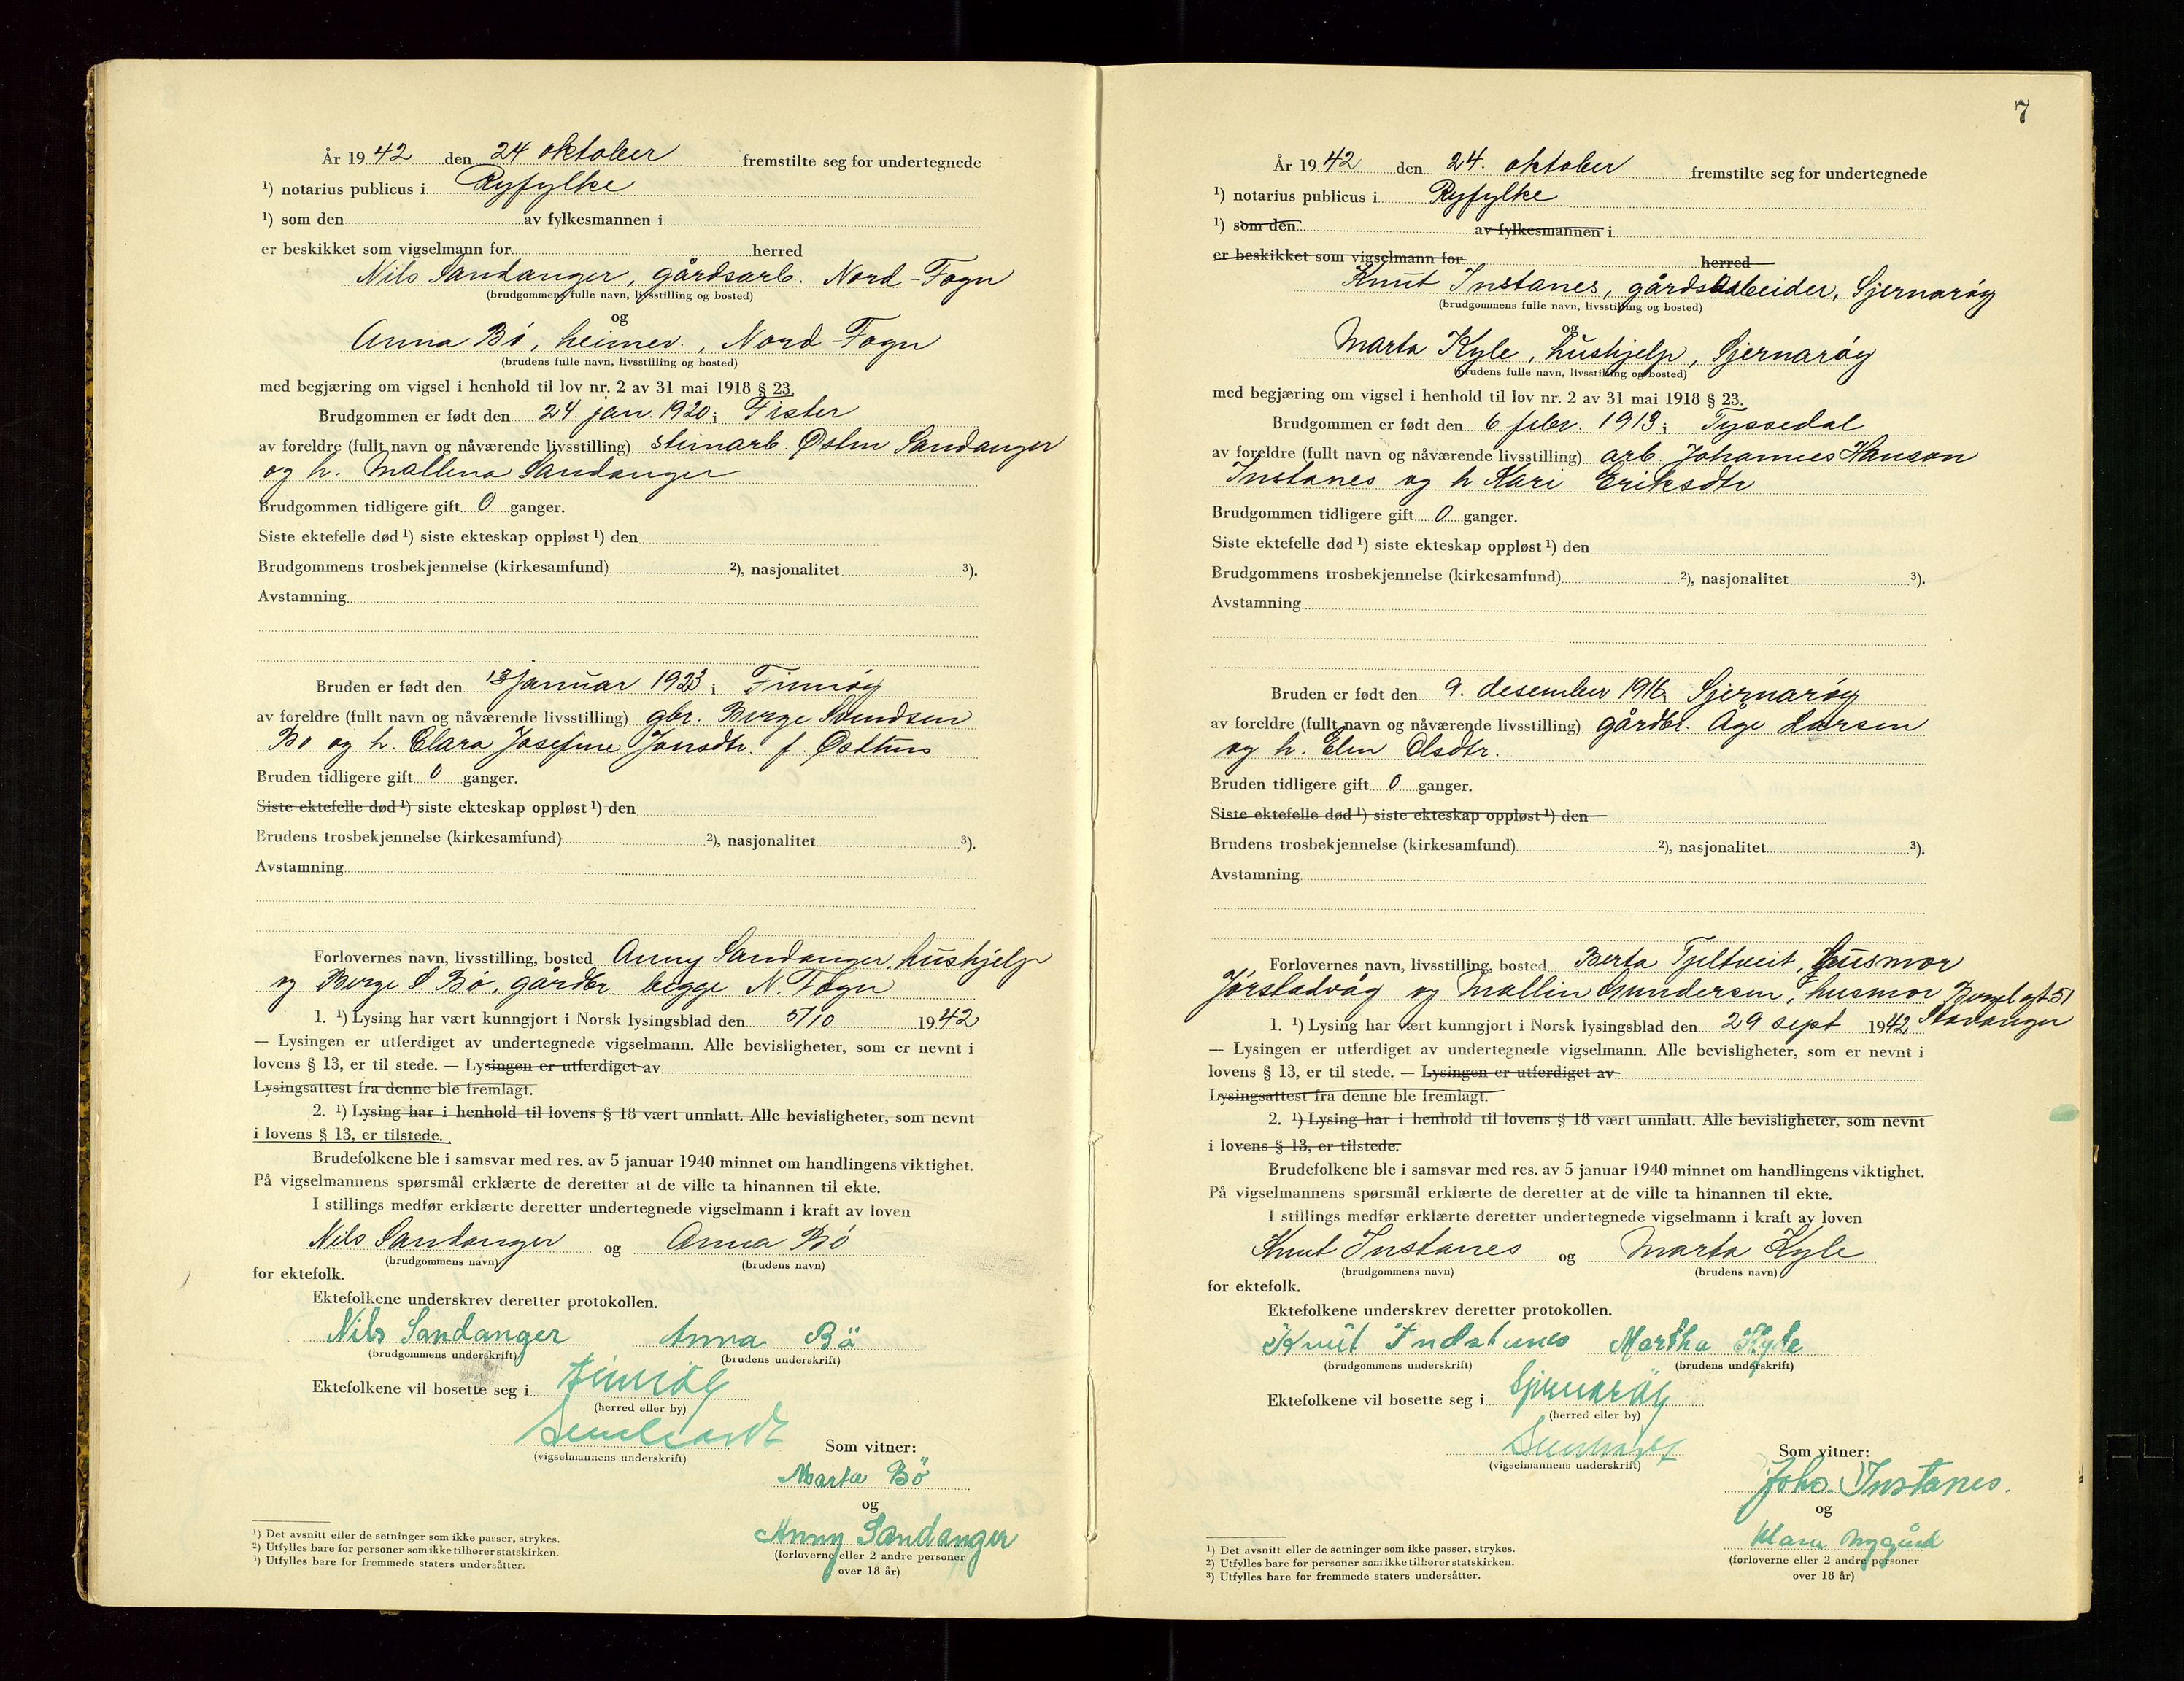 År 1942 den 24 oktober fremstilte seg for undertegnede
¹) notarius publicus i Ryfylke
¹) som den av fylkesmannen i
er beskikket som vigselmann for herred
Nils Sandanger, gårdsarb. Nord-Fogn
(brudgommens fulle navn, livsstilling og bosted)
og
Anna Bø, heimev., Nord-Fogn
(brudens fulle navn, livsstilling og bosted)
med begjæring om vigsel i henhold til lov nr. 2 av 31 mai 1918 § 23.
Brudgommen er født den 24. jan. 1920 i Fister
av foreldre (fullt navn og nåværende livsstilling) steinarb. Østen Sandanger
og h. Mallena Sandanger
Brudgommen tidligere gift 0 ganger.
Siste ektefelle død ¹) siste ekteskap oppløst ¹) den
Brudgommens trosbekjennelse (kirkesamfund) ²), nasjonalitet ³).
Avstamning
Bruden er født den 13 januar 1923 i Finnøy
av foreldre (fullt navn og nåværende livsstilling) gbr. Berge Svendsen
Bø og h. Clara Josefine Jonsdtr. f. Østhus
Bruden tidligere gift 0 ganger.
Siste ektefelle død ¹) siste ekteskap oppløst ¹) den
Brudens trosbekjennelse (kirkesamfund) ²), nasjonalitet ³).
Avstamning
Forlovernes navn, livsstilling, bosted Anny Sandanger, hushjelp
og Berge S. Bø, gårdbr begge N. Fogn
1. ¹) Lysing har vært kunngjort i Norsk lysingsblad den 5/10 1942
— Lysingen er utferdiget av undertegnede vigselmann. Alle bevisligheter, som er nevnt i
lovens § 13, er til stede. — Lysingen er utferdiget av
Lysingsattest fra denne ble fremlagt.
2. ¹) Lysing har i henhold til lovens § 18 vært unnlatt. Alle bevisligheter, som nevnt
i lovens § 13, er tilstede.
Brudefolkene ble i samsvar med res. av 5 januar 1940 minnet om handlingens viktighet.
På vigselmannens spørsmål erklærte de deretter at de ville ta hinannen til ekte.
I stillings medfør erklærte deretter undertegnede vigselmann i kraft av loven
Nils Sandanger og Anna Bø
(brudgommens navn) (brudens navn)
for ektefolk.
Ektefolkene underskrev deretter protokollen.
Nils Sandanger Anna Bö
(brudgommens underskrift) (brudens underskrift)
Ektefolkene vil bosette seg i Finnöy
(herred eller by)
(vigselmannens underskrift)
Som vitner:
Marta Bö
og
Anny Sandanger
(forloverne eller 2 andre personer
over 18 år)
¹) Det avsnitt eller de setninger som ikke passer, strykes.
²) Utfylles bare for personer som ikke tilhører statskirken.
³) Utfylles bare for fremmede staters undersåtter.
7
År 1942 den 24. oktober fremstilte seg for undertegnede
¹) notarius publicus i Ryfylke
¹) som den av fylkesmannen i
er beskikket som vigselmann for herred
Knut Instanes, gårdsarbeider, Sjernarøy
(brudgommens fulle navn, livsstilling og bosted)
og
Marta Kyle, hushjelp, Sjernarøy
(brudens fulle navn, livsstilling og bosted)
med begjæring om vigsel i henhold til lov nr. 2 av 31 mai 1918 § 23.
Brudgommen er født den 6 febr. 1913 i Tyssedal
av foreldre (fullt navn og nåværende livsstilling) arb. Johannes Hanson
Instanes og h Kari Eriksdtr
Brudgommen tidligere gift 0 ganger.
Siste ektefelle død ¹) siste ekteskap oppløst ¹) den
Brudgommens trosbekjennelse (kirkesamfund) ²), nasjonalitet ³).
Avstamning
Bruden er født den 9. desember 1916 Sjernarøy
av foreldre (fullt navn og nåværende livsstilling) gårdbr. Åge Larsen
og h. Elen Olsdtr.
Bruden tidligere gift 0 ganger.
Siste ektefelle død ¹) siste ekteskap oppløst ¹) den
Brudens trosbekjennelse (kirkesamfund) ²), nasjonalitet ³).
Avstamning
Forlovernes navn, livsstilling, bosted Berta Tjeltveit, husmor
Jørstadvåg og Mallin Gundersen, husmor 51
Stavanger
1. ¹) Lysing har vært kunngjort i Norsk lysingsblad den 29 sept 1942
— Lysingen er utferdiget av undertegnede vigselmann. Alle bevisligheter, som er nevnt i
lovens § 13, er til stede. — Lysingen er utferdiget av
Lysingsattest fra denne ble fremlagt.
2. ¹) Lysing har i henhold til lovens § 18 vært unnlatt. Alle bevisligheter, som nevnt
i lovens § 13, er tilstede.
Brudefolkene ble i samsvar med res. av 5 januar 1940 minnet om handlingens viktighet.
På vigselmannens spørsmål erklærte de deretter at de ville ta hinannen til ekte.
I stillings medfør erklærte deretter undertegnede vigselmann i kraft av loven
Knut Instanes og Marta Kyle
(brudgommens navn) (brudens navn)
for ektefolk.
Ektefolkene underskrev deretter protokollen.
Knut Indstanes Martha Kyle
(brudgommens underskrift) (brudens underskrift)
Ektefolkene vil bosette seg i Sjernaröy
(herred eller by)
(vigselmannens underskrift)
Som vitner:
Johs. Instanes.
og
Klara Nygård
(forloverne eller 2 andre personer
over 18 år)
¹) Det avsnitt eller de setninger som ikke passer, strykes.
²) Utfylles bare for personer som ikke tilhører statskirken.
³) Utfylles bare for fremmede staters undersåtter.